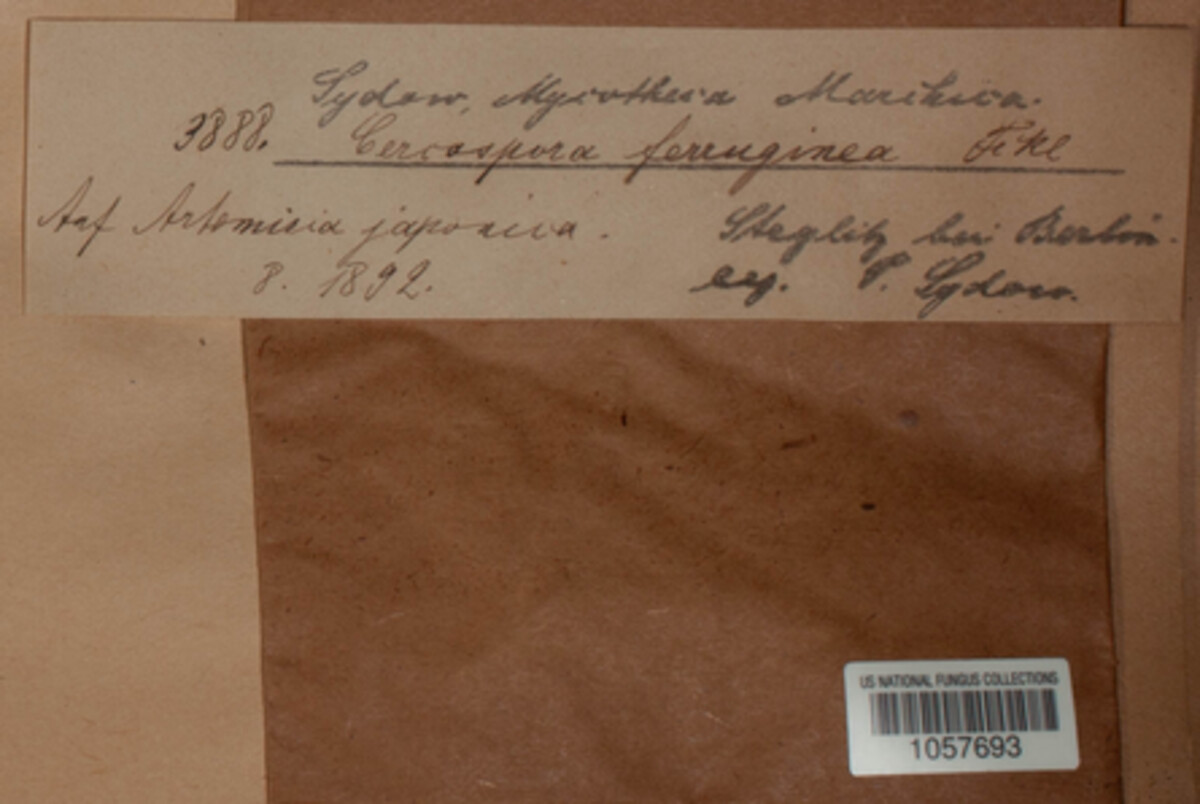 Sydow, Mycotheca Marchica.
3888. Cercospora ferruginea Fckl
Auf Artemisia japonica.
8. 1892.
Steglitz bei Berlin.
leg. P. Sydow.
US NATIONAL FUNGUS COLLECTIONS
1057693